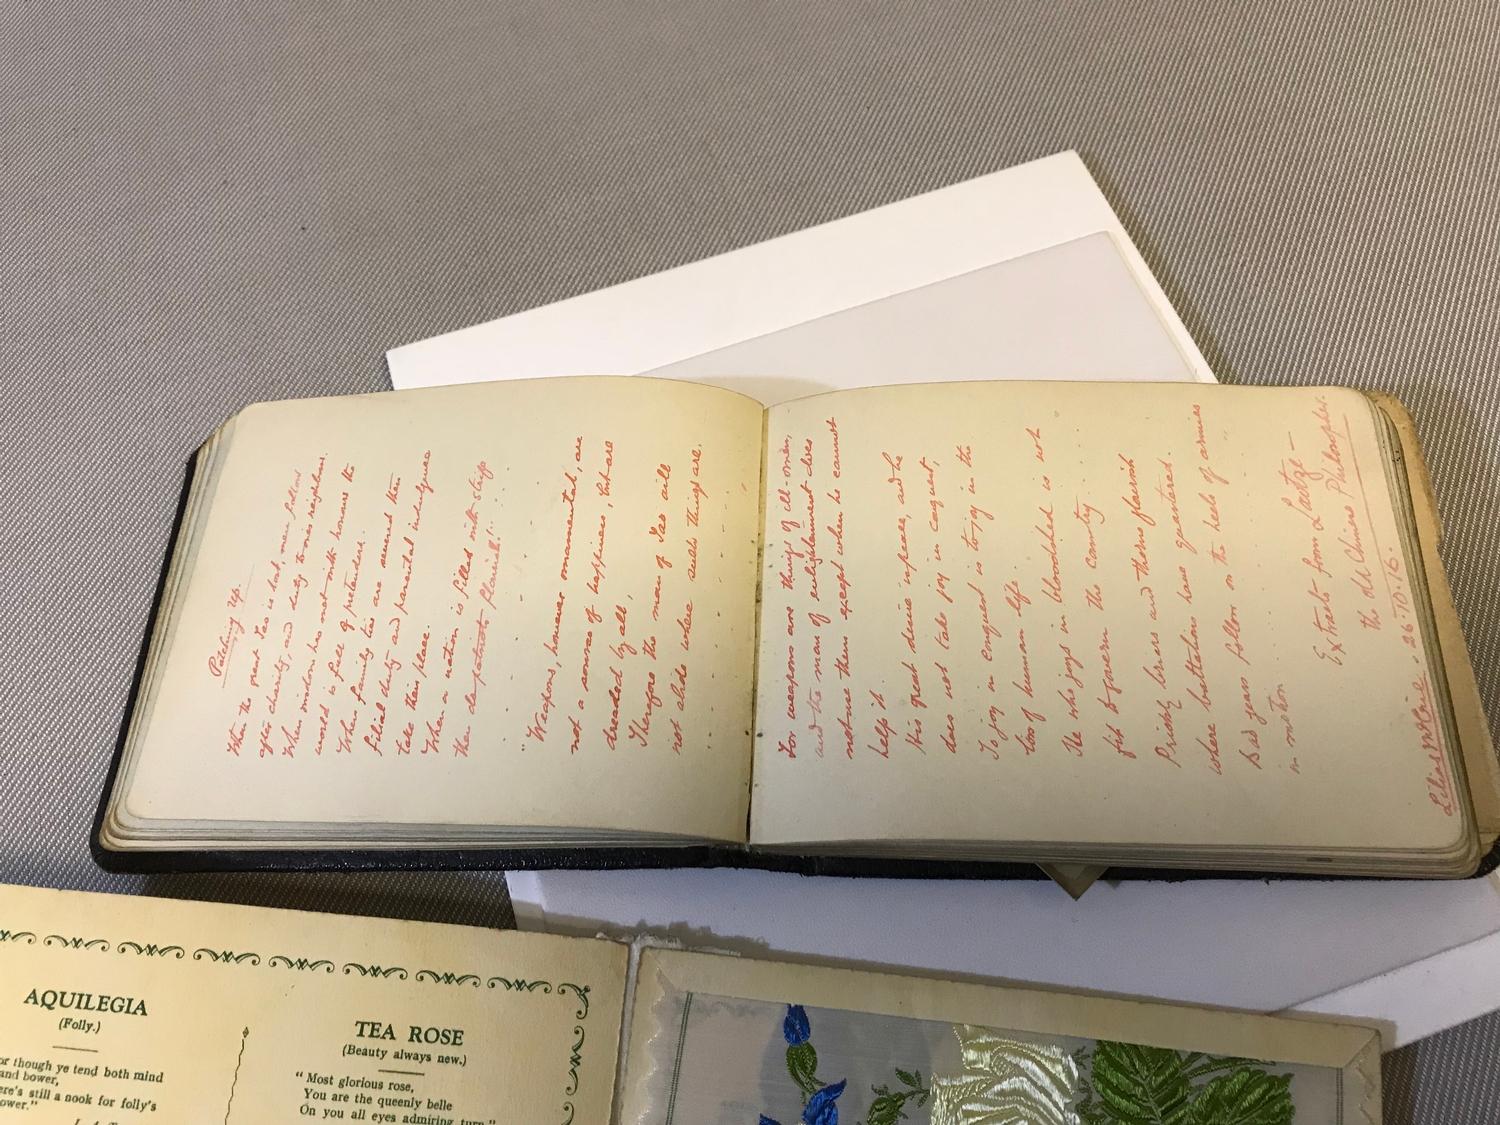 Patching up.
When the great Tao is lost, men follow
after charity, and duty to ones neighbour.
When wisdom has met with honours the
world is full of pretenders.
When family ties are severed then
filial duty and parental indulgence
take their place.
When a nation is filled with strife
then do patriots flourish."
"Weapons, however ornamented, are
not a source of happiness, but are
dreaded by all,
Therefore the man of Tao will
not abide where such things are.
For weapons are things of ill-omen,
and the man of enlightenment does
not use them except when he cannot
help it.
His great desire is peace, and he
does not take joy in conquest,
To joy in conquest is to joy in the
loss of human life.
He who joys in bloodshed is not
fit to govern the country
Priestly briers and thorns flourish
where battalions have quartered.
Bad years follow on the heels of armies
in motion
Extracts from Laotze —
the old Chinese Philosopher.
26.10.16.
AQUILEGIA
(Folly.)
or though ye tend both mind
and bower,
ere's still a nook for folly's
ower."
TEA ROSE
(Beauty always new.)
"Most glorious rose,
You are the queenly belle
On you all eyes admiring turn."